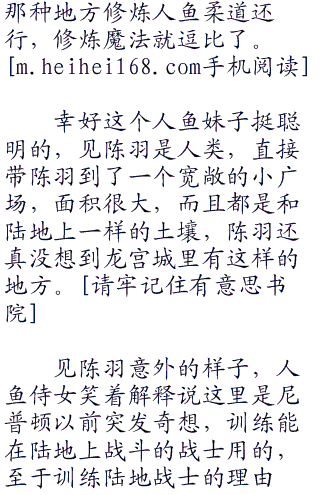 那种地方修炼人鱼柔道还
行，修炼魔法就逗比了。
[m.heihei168.com手机阅读]
幸好这个人鱼妹子挺聪
明的，见陈羽是人类，直接
带陈羽到了一个宽敞的小广
场，面积很大，而且都是和
陆地上一样的土壤，陈羽还
真没想到龙宫城里有这样的
地方。[请牢记住有意思书
院]
见陈羽意外的样子，人
鱼侍女笑着解释说这里是尼
普顿以前突发奇想，训练能
在陆地上战斗的战士用的，
至于训练陆地战士的理由